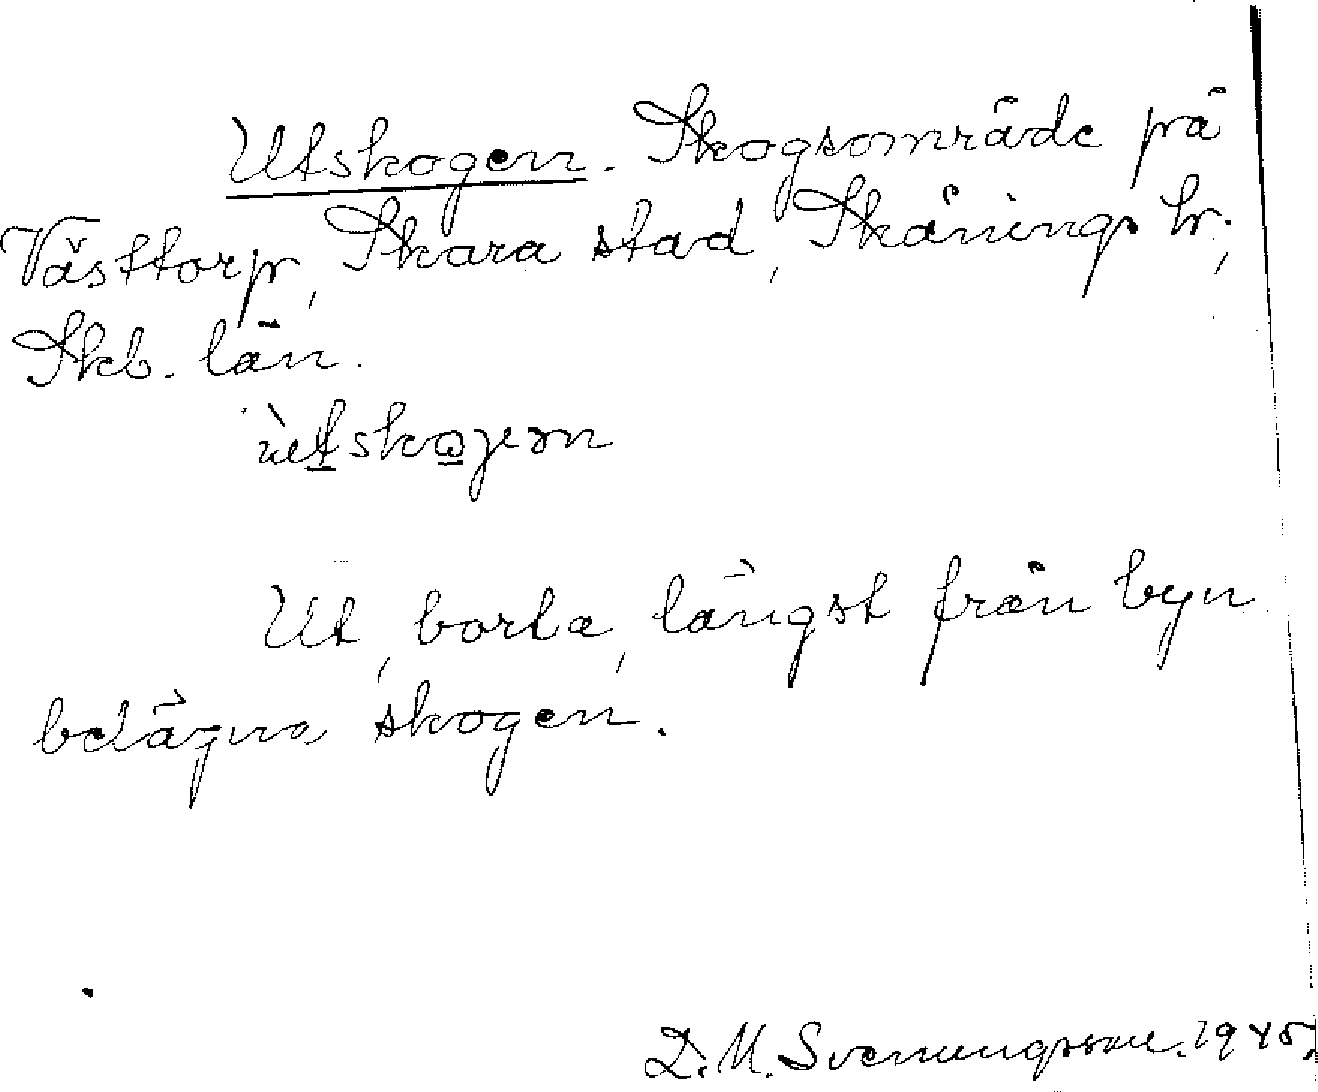 Utskogen. Skogsområde på
Västtorp, Skara stad, Skånings hr.,
Skb. län.
Ut, borta, längst från byn
belägna skogen.
D. M. Svenungsson. 1945.